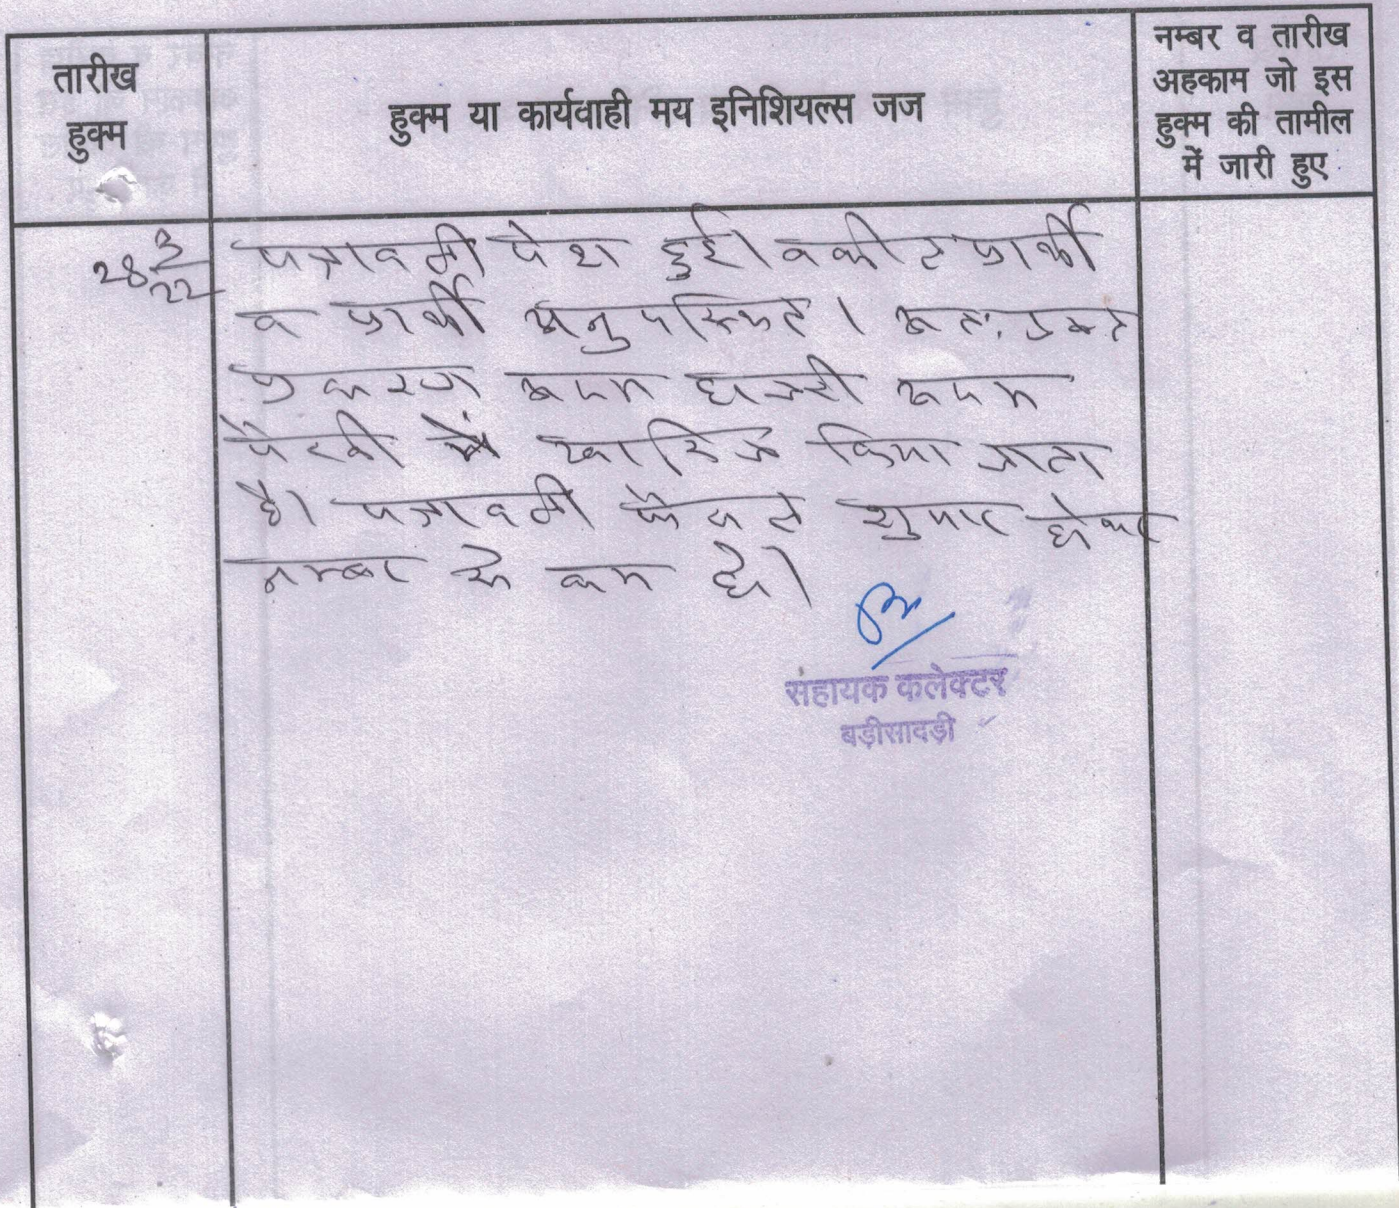 तारीख
हुक्म
हुक्म या कार्यवाही मय इनिशियल्स जज
नम्बर व तारीख
अहकाम जो इस
हुक्म की तामील
में जारी हुए
28/3/22
पत्रावली पेश हुई। वकील प्रार्थी
व प्रार्थी अनुपस्थित। अतः
प्रकरण अदम हाजरी अदम
पैरवी में खारिज किया जाता
है। पत्रावली फैसल शुमार होकर
नम्बर से कम हो।
सहायक कलेक्टर
बड़ीसादड़ी